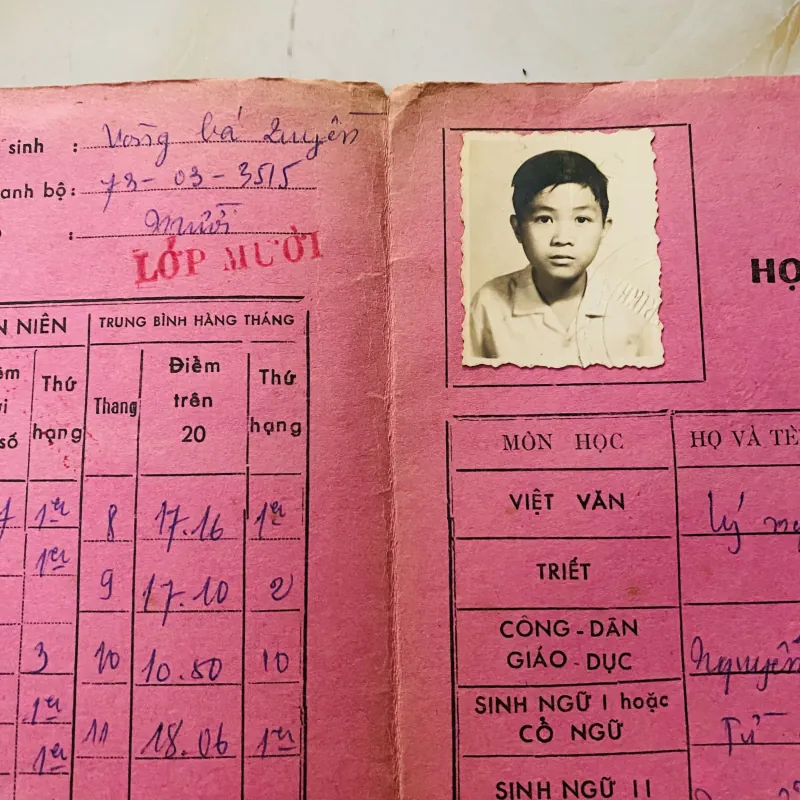 sinh : Vòng bá Quyền
anh bộ: 73-03-3515
: Mười
LỚP MƯỜI
N NIÊN
TRUNG BÌNH HÀNG THÁNG
Thứ hạng
Thang
Điểm trên 20
Thứ hạng
số
1er 8 17.16 1er
1er
9 17.10 2
3 10 10.50 10
1er
11 18.06 1er
1er
HỌ
MÒN HỌC
HỌ VÀ TÊ
VIỆT VĂN
Lý
TRIẾT
CÔNG-DÂN
GIÁO-DỤC
Nguyễn
SINH NGỮ I hoặc
CỔ NGỮ
Từ
SINH NGỮ II